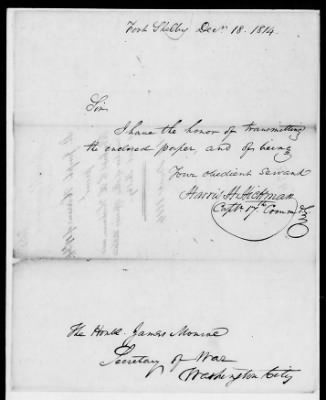 Fort Shelby Decr 18. 1814.
Sir
I have the honor of transmitting
the enclosed paper, and of being
Your obedient servant
Harris H. Hickman
Captn. 17th Comm
The Honble. James Monroe
Secretary of War
Washington City